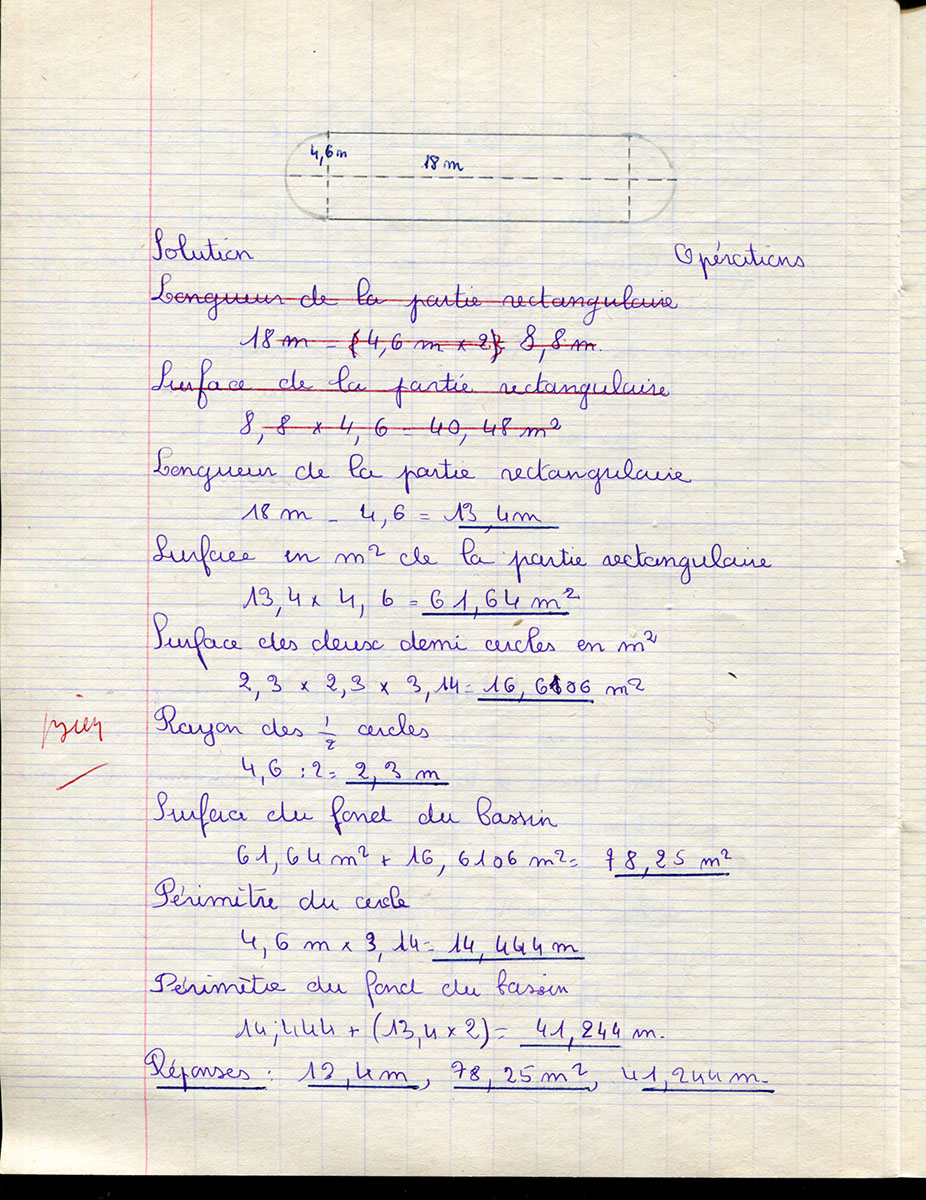 4,6 m
18 m
Solution
Opérations
Longueur de la partie rectangulaire
18 m - (4,6 m × 2) 8,8 m.
Surface de la partie rectangulaire
8,8 × 4,6 = 40,48 m²
Longueur de la partie rectangulaire
18 m - 4,6 = 13,4m
Surface en m² de la partie rectangulaire
13,4 × 4,6 = 61,64 m²
Surface des deux demi cercles en m²
2,3 × 2,3 × 3,14 = 16,6106 m²
Rayon des 1/2 cercles
bien
4,6 : 2 = 2,3 m
Surface du fond du bassin
61,64 m² + 16,6106 m² = 78,25 m²
Périmètre du cercle
4,6 m × 3,14 = 14,444 m
Périmètre du fond du bassin
14,444 + (13,4 × 2) = 41,244 m.
Réponses : 13,4m, 78,25 m², 41,244 m.